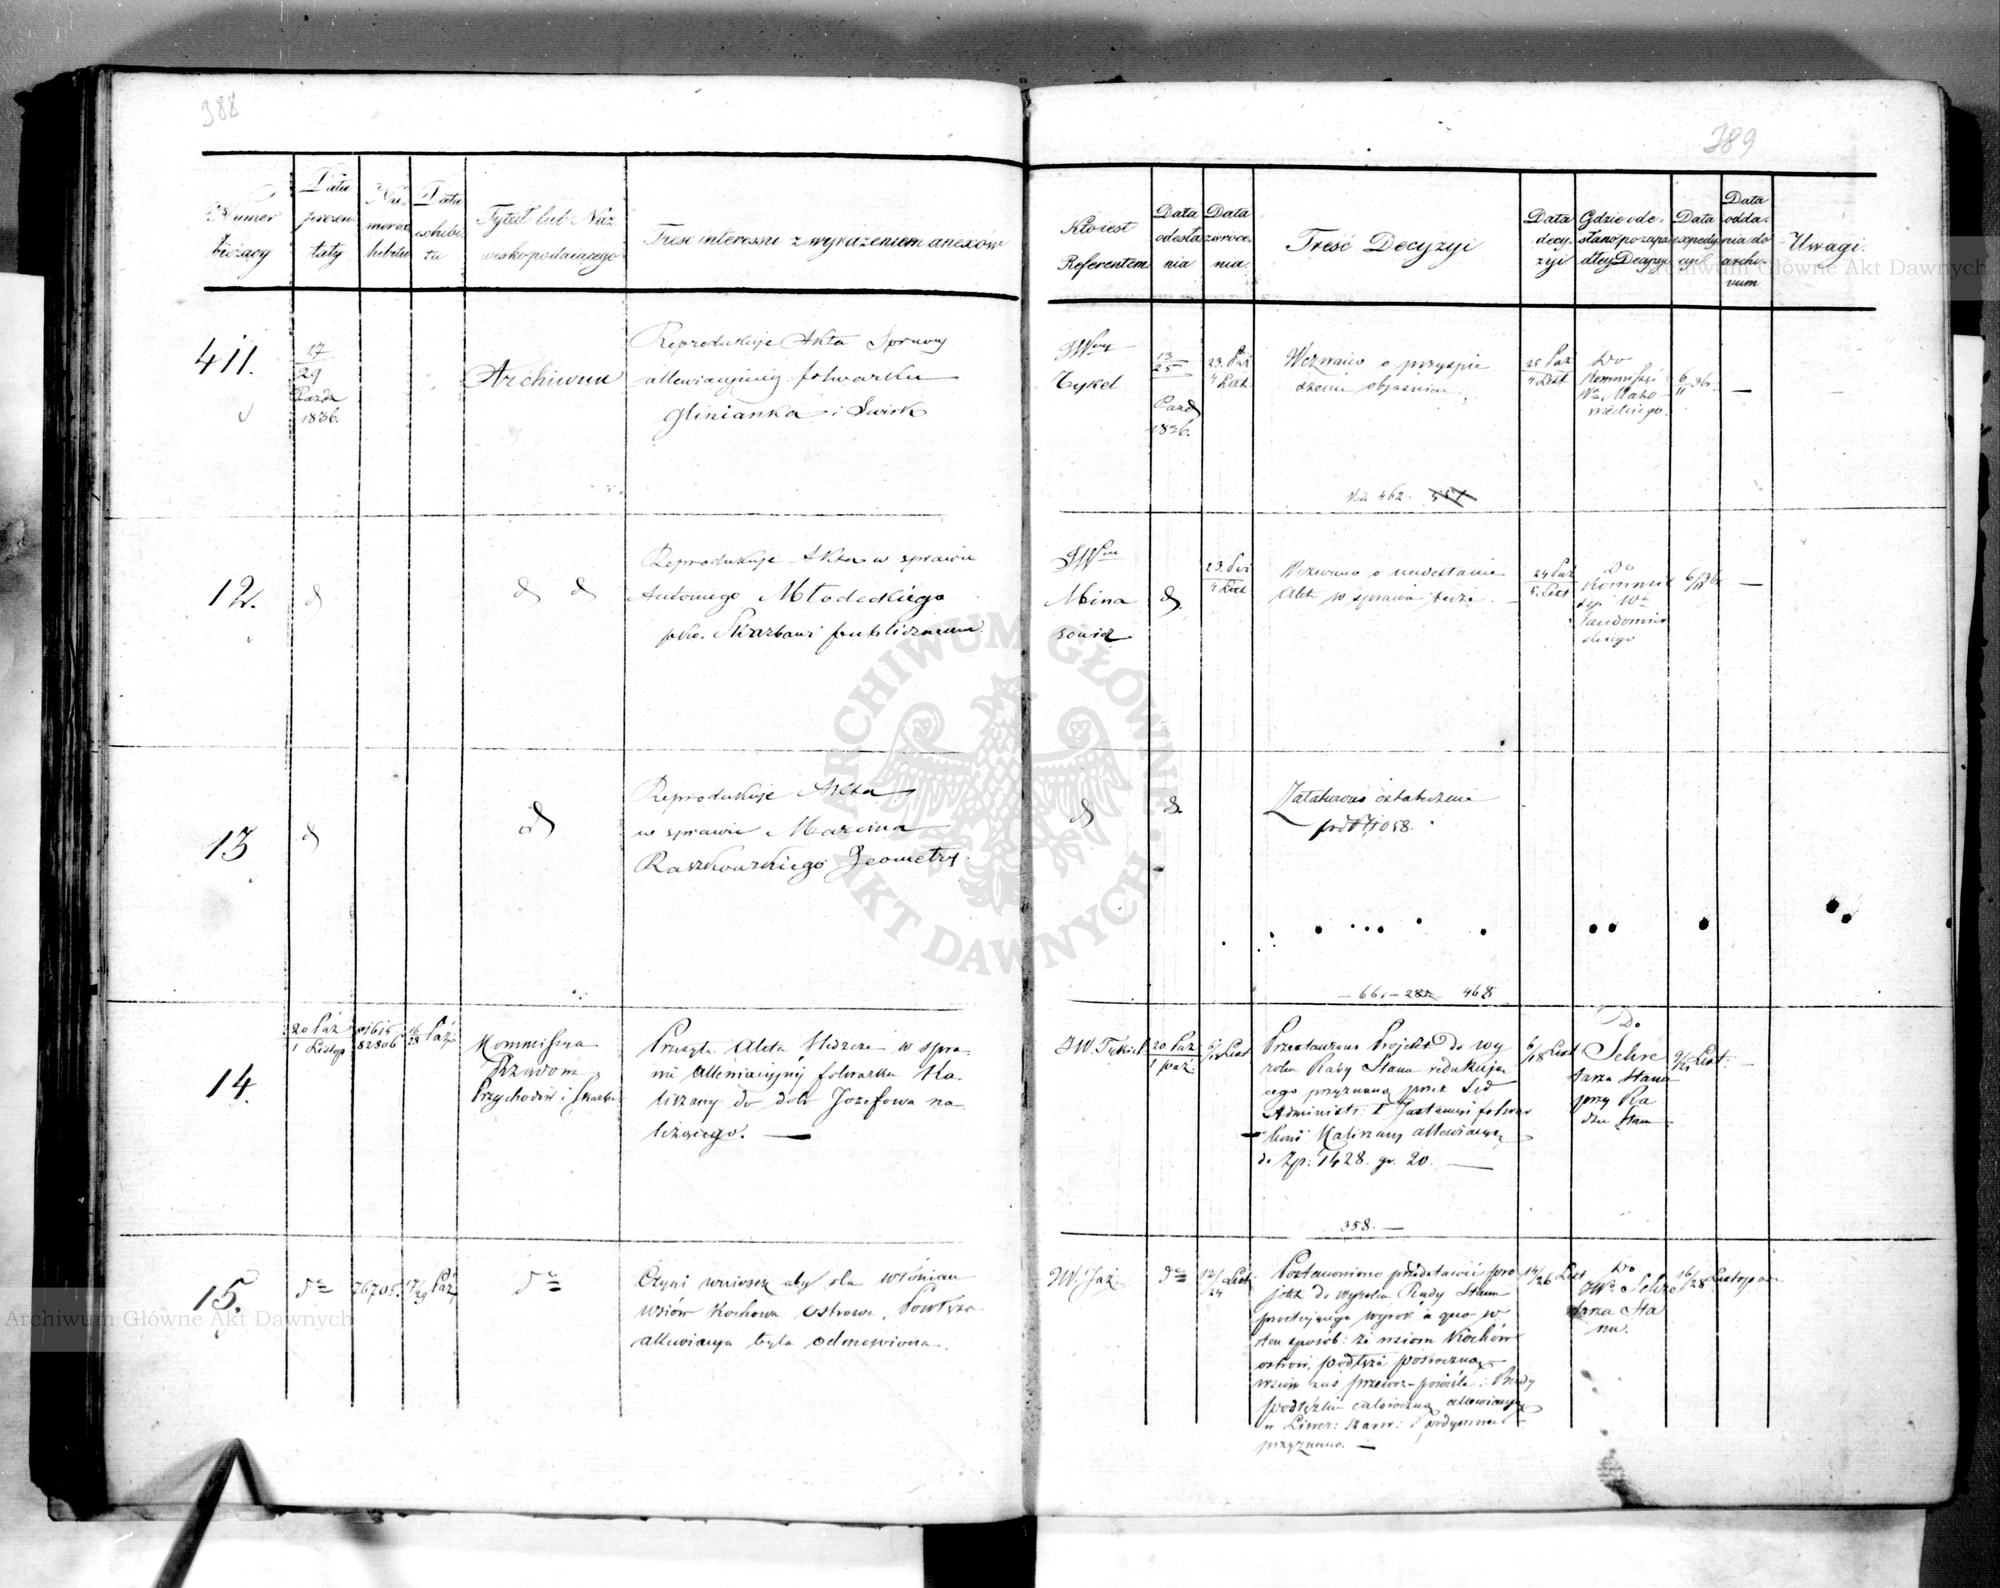 388
Numer bieżący
Data prezentaty
Data exhibitu
Tytuł lub Naz
wisko podającego
Treść interessu z wyrażeniem anexów
411.
17
29
Paźd
1836.
Archiwum
Reprodukuje Akta Sprawy
allewiacyjney folwarku
Glinianka i Świrk
12.
d
d d
Reprodukuje Akta w sprawie
Antoniego Młodeckiego
pko. Skarbowi publicznemu.
13
d
d
Reprodukuje Akta
w sprawie Marcina
Raszkowskiego Geometry.
14.
20 Paź
1 Listop
82806
16
28 Paź
Kommissya
Rządowa
Przychodów i Skarbu
akta śledcze w spra
wie allewiacyjnéj folwarku Ka
liszany do dóbr Józefowa na
leżącego. —
15.
76705.
17/29 Paź
Czyni wniosek aby dla włościan
wsiów Kochowa Ostrowa, Powłęża
allewiacya była odmówiona.
389
Któren jest
Referentem
Data
odesła
nia
Data
zwróce
nia.
Treść Decyzyi
Data
decy
zyi
Gdzie ode-
słano po zapa
dłey Decyzyi
Data
expedy
cyi
Data
odda-
nia do
archi-
vum
Uwagi.
JW
Tykel
13
25
Paźd
1836.
23. Paź
4 List
Wezwano o przyspie
szenie objaśnień.
25 Paź
4 List
Do
Kommissyi
Wa Mazo
wieckiego.
6/11 36.
—
Vide 462.
JW
Mina
sowicz
d.
23. Paź
4 List
Wezwano o nadesłanie
Akt w sprawie tejże.
24 Paź
5 List
Do
Kommis
syi Wa
Sandomir
skiego
—
d
d.
Załatwiono ostatecznie
pod N 1058.
468
JW. Tykiel
20. Paź
1 paź.
6/18 List
Przesłano Projekt do wy
roku Rady Stanu redukują
cego przyznaną przez Sąd
Administr. I Instancyi folwar
kowi Kaliszany allewiacyą
do Zp: 1428. gr. 20. —
6/18 List
Do
Sekre
tarza Stanu
przy Ra
dzie Stanu
9/21 List.
—
358. —
JW. Jaź
12/24 List
Postanowiono przedstawić pro
jekt do wyroku Rady Stanu
prostujący wyrok a quo w
ten sposób: że wsiom Kochów
ostrów, podłęża półroczną
wsiom zaś przewoz-powiśle i Brody
podłęzkie całoroczną allewiacyą
przyznano. —
14/26 List
Do
JWo Sekre
tarza Sta
nu.
16/28 Listopada
ARCHIWUM GŁÓWNE AKT DAWNYCH
Archiwum Główne Akt Dawnych
Archiwum Główne Akt Dawnych